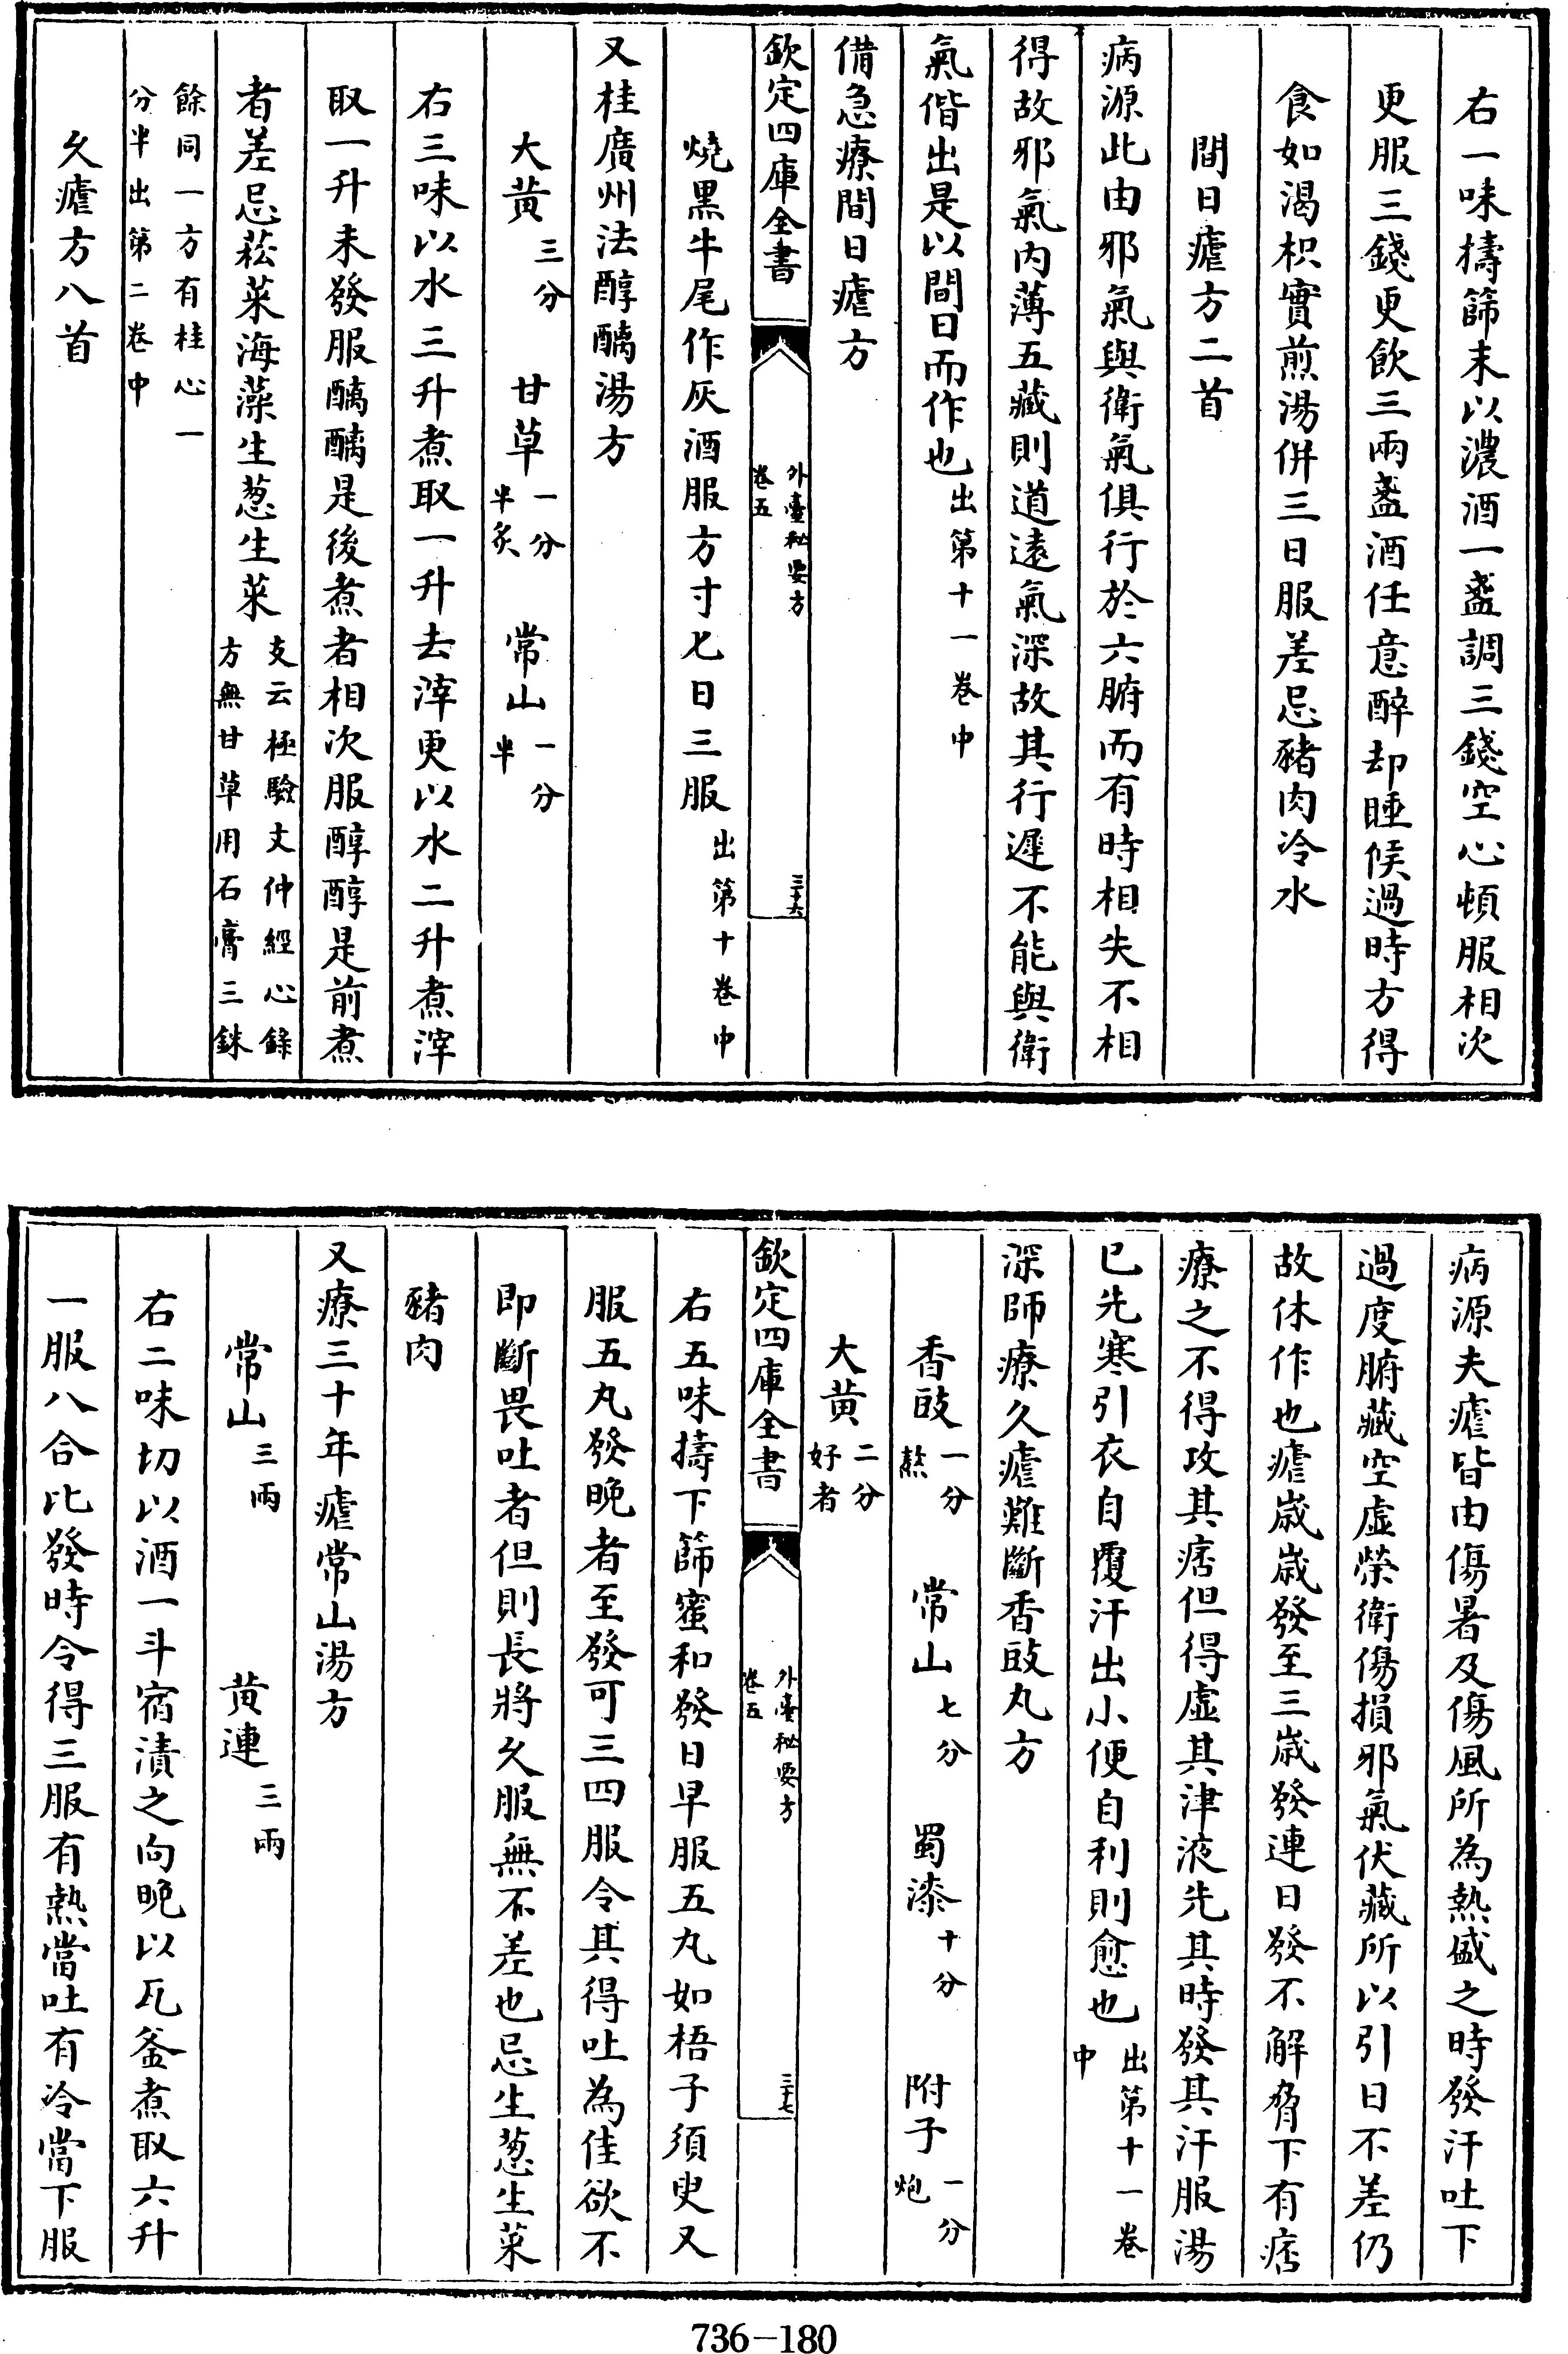 右一味擣篩末以濃酒一盞調三錢空心頓服相次
更服三錢更飲三兩盞酒任意醉却睡候過時方得
食如渴枳實煎湯併三日服差忌豬肉冷水
間日瘧方二首
病源此由邪氣與衛氣俱行於六腑而有時相失不相
得故邪氣内薄五藏則道逺氣深故其行遲不能與衛
氣偕出是以間日而作也出第十一卷中
備急療間日瘧方
欽定四庫全書
外臺秘要方
卷五
三十六
燒黑牛尾作灰酒服方寸匕日三服出第十卷中
又桂廣州法醇醨湯方
大黄三分 甘草一分半炙 常山一分半
右三味以水三升煮取一升去滓更以水二升煮滓
取一升未發服醨醨是後煮者相次服醇醇是前煮
者差忌菘菜海藻生葱生菜支云極驗文仲經心錄方無甘草用石膏三銖
餘同一方有桂心一分半出第二卷中
久瘧方八首
病源夫瘧皆由傷暑及傷風所為熱盛之時發汗吐下
過度腑藏空虚榮衛傷損邪氣伏藏所以引日不差仍
故休作也瘧嵗嵗發至三嵗發連日發不解脅下有痞
療之不得攻其痞但得虚其津液先其時發其汗服湯
已先寒引衣自覆汗出小便自利則愈也出第十一卷中
深師療久瘧難斷香豉丸方
香豉一分熬 常山七分 蜀漆十分 附子一分炮
大黄二分好者
欽定四庫全書
外臺秘要方
卷五
三十七
右五味擣下篩蜜和發日早服五丸如梧子須臾又
服五丸發晚者至發可三四服令其得吐為佳欲不
即斷畏吐者但則長將久服無不差也忌生葱生菜
豬肉
又療三十年瘧常山湯方
常山三兩 黄連三兩
右二味切以酒一斗宿漬之向晩以瓦釜煮取六升
一服八合比發時令得三服有熱當吐有冷當下服
736-180